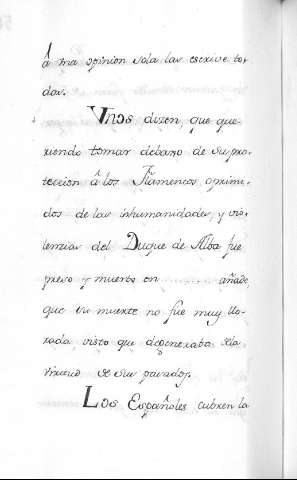 â una opinion sola las escrive to-
das.
Unos dizen, que que-
riendo tomar debaxo de su pro-
teccion â los Flamencos, oprimi-
dos de las inhumanidades, y vio-
lenzias del Duque de Alba fue
preso y muerto en añade
que su muerte no fue muy llo-
rada, visto que degeneraba de la
virtud de sus pasados.
Los Españoles cubren la